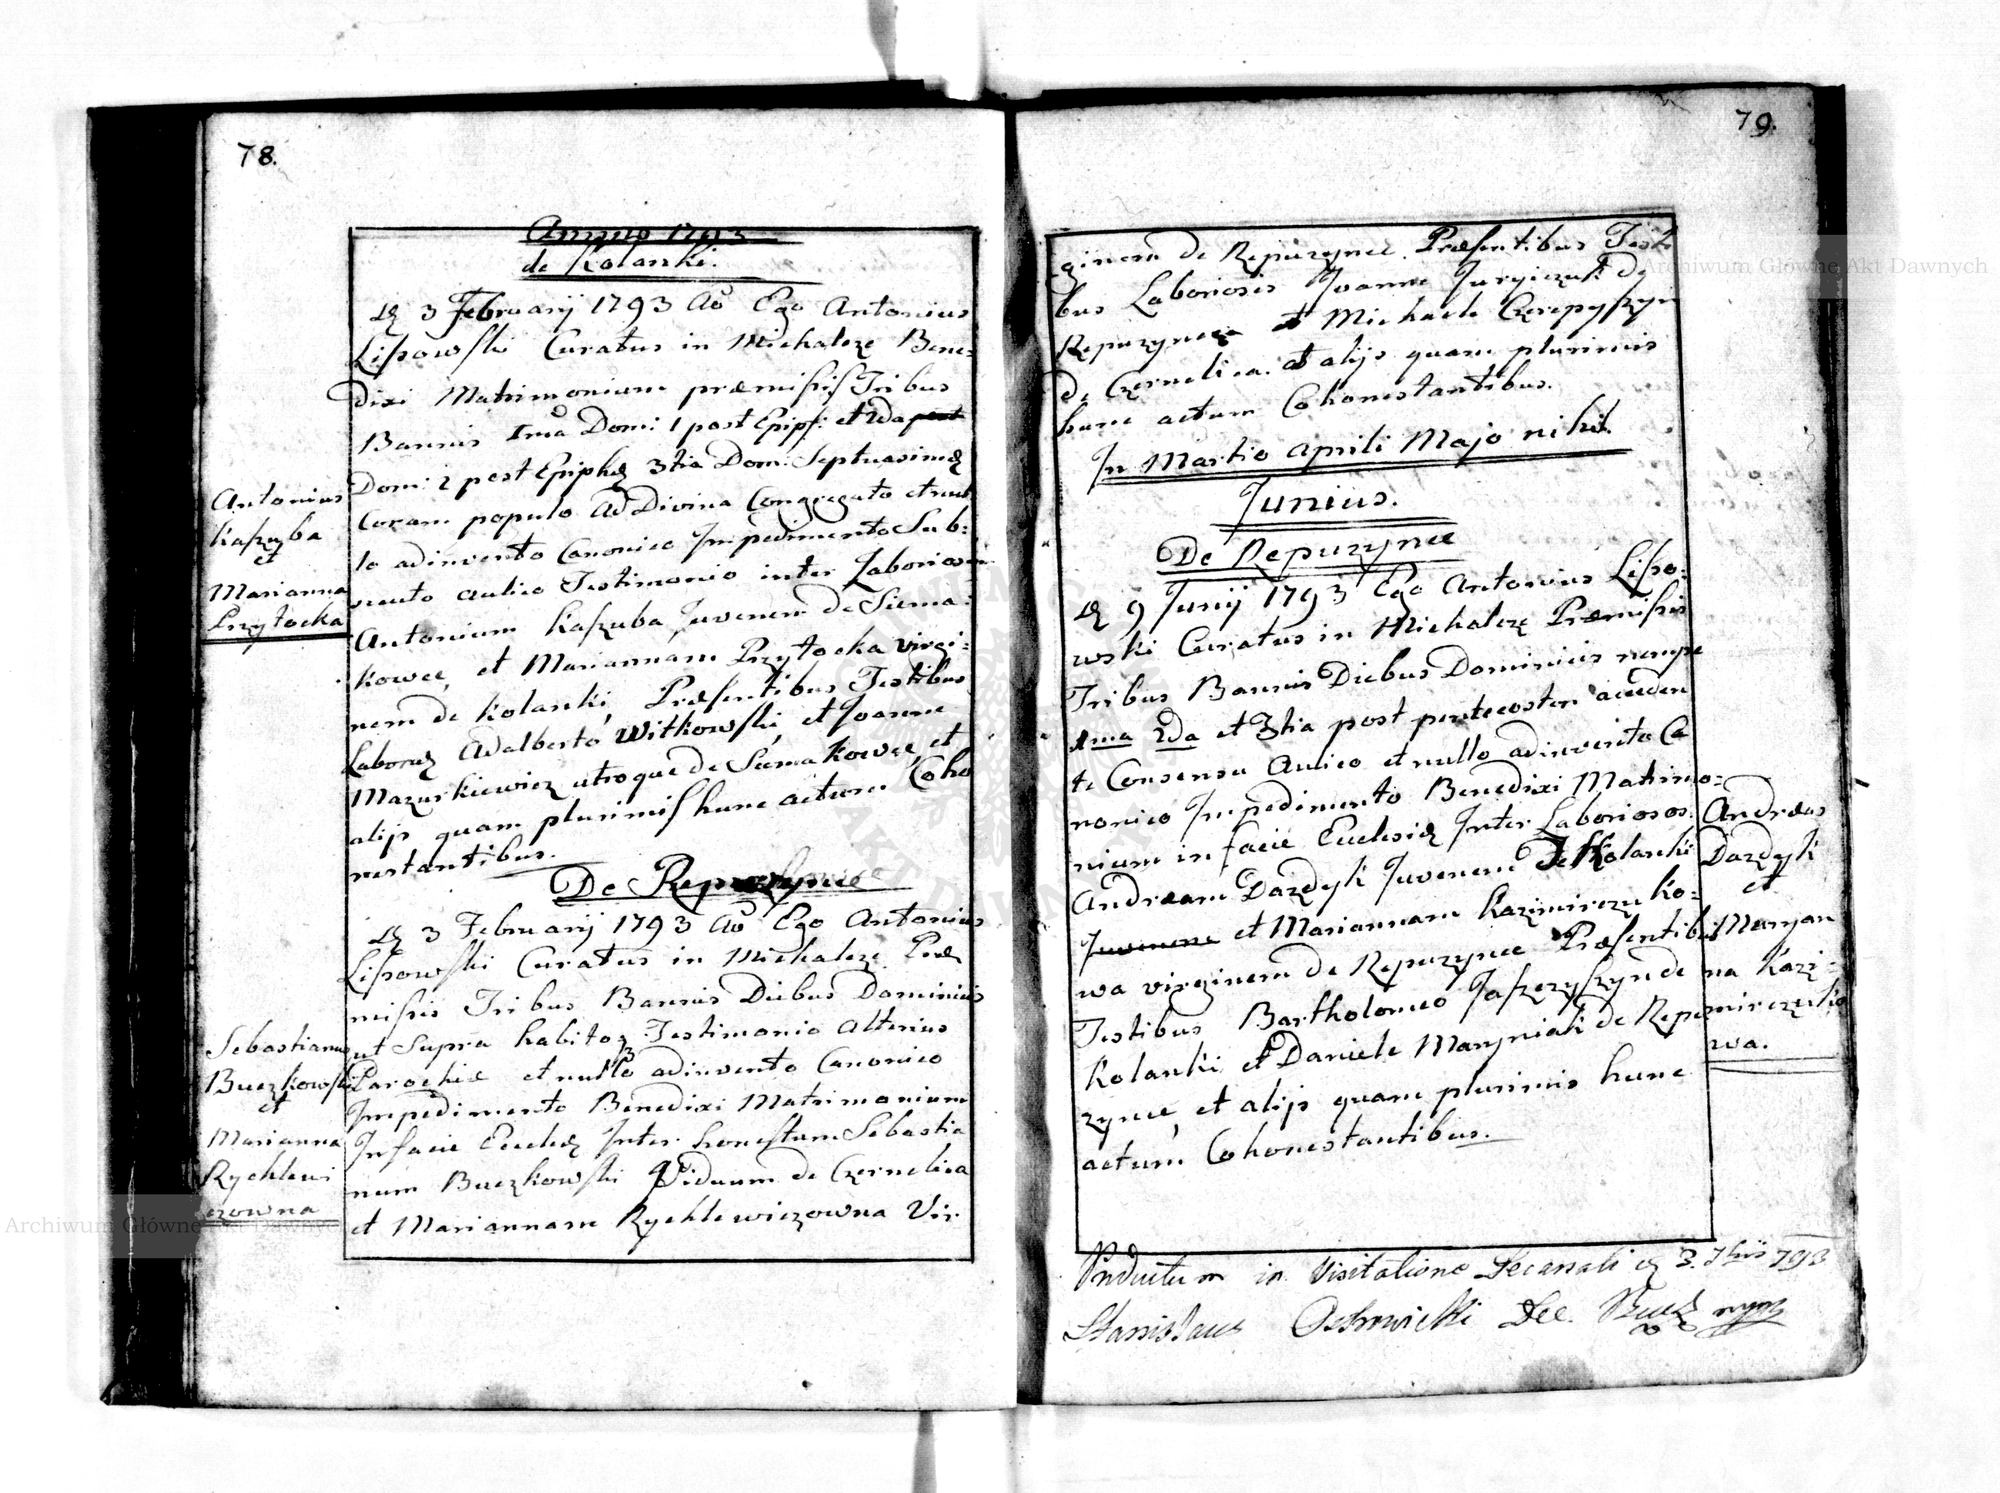 78.
Anno 1793
de Kolanki.
Antonius
Kaszuba
et
Marianna
Przytocka
Dę 3 Februarij 1793 Aō Ego Antonius
Lissowski Curatus in Michalcze Bene-
dixi Matrimonium præmissis Tribus
Bannis Ima Domi: 1 post Epiph: et 2da post
Domi: 2 post Epiphę 3tia Dom: Septuasimę
Coram populo ad Divina Congregato et nul
lo adinvento Canonico Impedimento Sub:
secuto aulico Testimonio inter Laboriosum
Antonium Kaszuba Juvenem de Siema:
kowce, et Mariannam Przytocka virgi:
nem de Kolanki, Præsentibus Testibus
Laborię Adalberto Witkowski, et Joanne
Mazurkiewicz utroque de Siemakowce, et
alijs quam plurimis hunc actum Coho
nestantibus.
De Repuzynce
Sebastianus
Buczkowski
et
Marianna
Rychlewi
czowna
Dę 3 Februarij 1793 Aō Ego Antonius
Lissowski Curatus in Michalcze Præ
missis Tribus Bannis Diebus Dominicis
ut Supra habitoq Testimonio alterius
Parochiæ et nullo adinvento Canonico
Impedimento Benedixi Matrimonium
In facie Eccleę Inter honestum Sebastia
num Buczkowski Viduum de Czernelica
et Mariannam Rychlewiczowna Vir-
79.
ginem de Repuzynce. Præsentibus Testi
bus Laboriosis Joanne Juryiczuk de
Repuzynce et Michaele Czerepyszyn
de Czernelica. et alijs quam plurimis
hunc actum Cohonestantibus.
In Martio aprili Majo nihil.
Junius.
De Repuzynce
Dę 9 Junij 1793 Ego Antonius Lisso:
wski Curatus in Michalcze Præmissis
Tribus Bannis Diebus Dominicis nempe
1ma 2da et 3tia post pentecosten acceden
te Consensu Aulico et nullo adinvento Ca
nonico Impedimento Benedixi Matrimo:
nium in facie Ecclesię Inter Laboriosos:
Andream Dazdyk Juvenem De Kolanki
Juvenem et Mariannam Kazimirczuko-
wa virginem de Repuzynce Præsentibus
Testibus Bartholomeo Jaszczyszyn de
Kolanki et Daniele Maryniak de Repu
zynce, et alijs quam plurimis hunc
actum Cohonestantibus.
Andreas
Dazdyk
et
Maryan
na Kazi:
mirczuko
wa.
Productum in Visitatione Decanali dę 3. 793
Stanislaus Ostrowicki Dec.
Archiwum Główne Akt Dawnych
Archiwum Główne Akt Dawnych